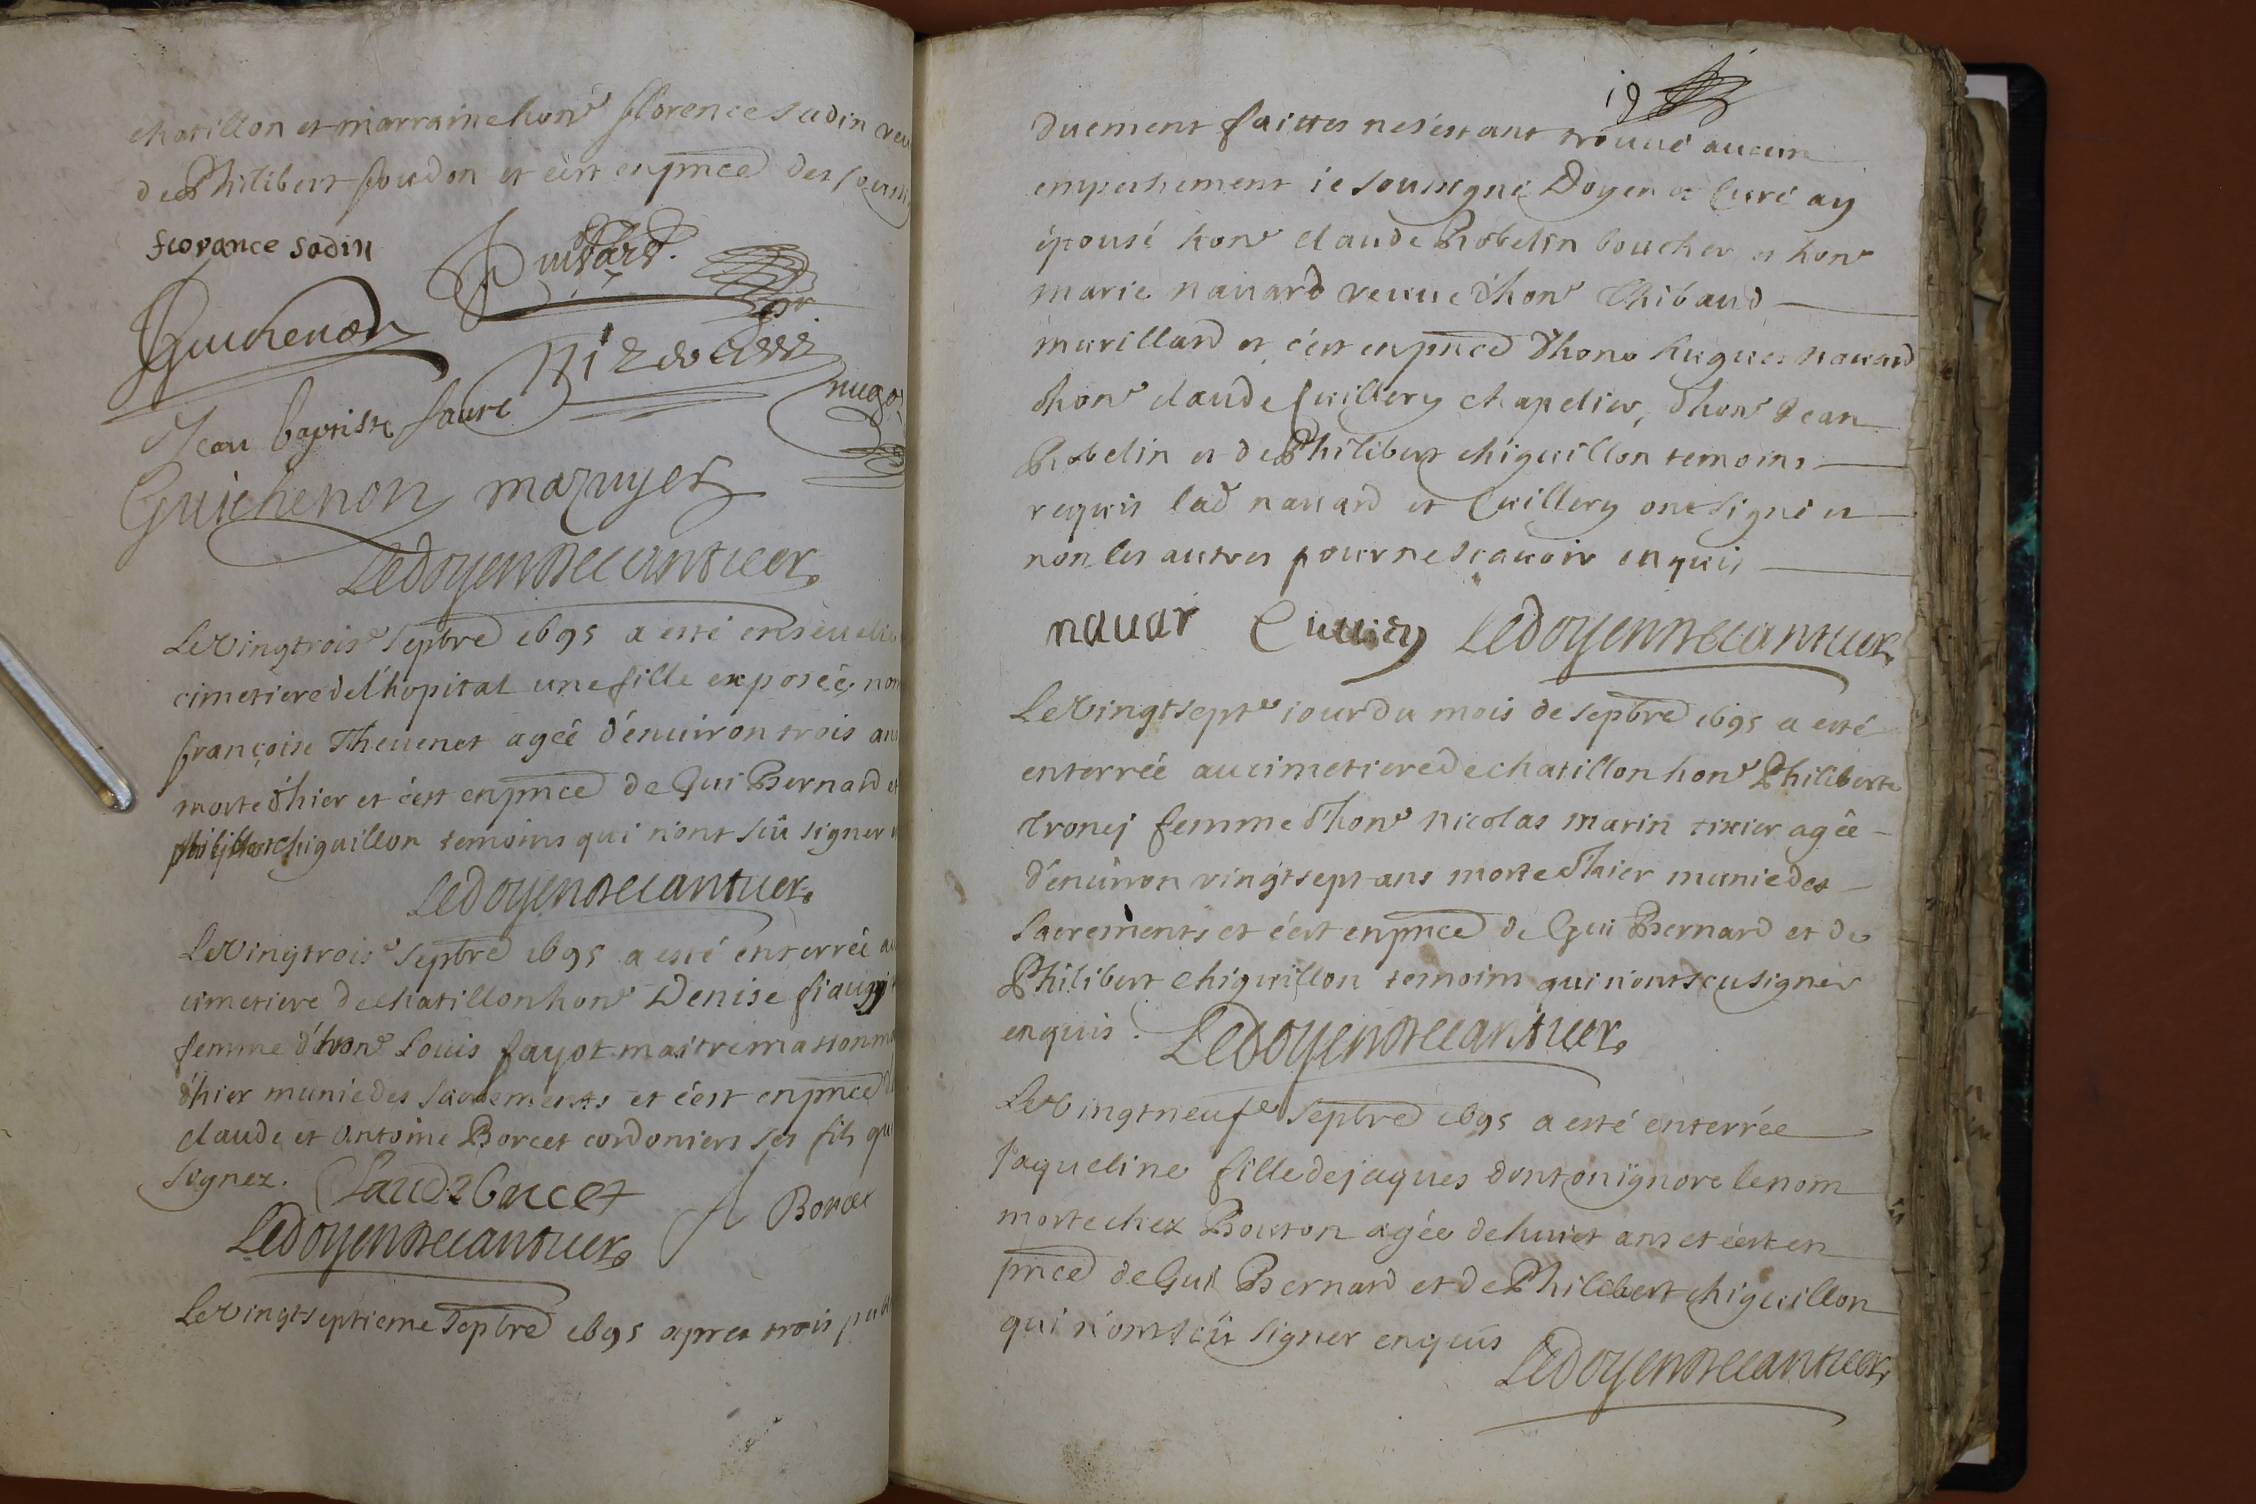 chatillon et marraine hon^e florence sadin veu
de Philibert foudon et c'est en pnce des soussi
florance sadin
Guichenon
Jean baptiste faure
nugo
Guichenon mazuyer
Le doyen Decantuer
Le vingtrois^e Sepbre 1695 a esté enseueli
cimetiere de l'hopital une fille exposée nom
françoise Theuenet agée d'enuiron trois ans
morte d'hier et c'est en pnce de Gui Bernard et
philibert chiguillon temoins qui n'ont sçû signer
Le doyen Decantuer
Le vingtrois^e Sepbre 1695 a esté enterrée au
cimetiere de chatillon hon^e Denise
femme d'hon^e Louis fayot maitre masson mo
d'hier munie des sacrements et c'est en pnce d
claude et Antoine Borcet cordoniers ses fils qu
signez. Claude borcet
A Borcet
Le doyen Decantuer
Le vingtseptieme Sepbre 1695 apres trois pub
19
duement faittes ne s'estant trouué aucun
empeshement ie soussigné Doyen et Curé ay
épousé hon^e claude Robelin boucher et hon^e
marie nauard veuue d'hon^e Thibaud
murillard et c'est en pnce d'hon^e hugues nauard
d'hon^e claude Cuillery chapelier, d'hon^e Jean
Robelin et de Philibert chiguillon temoins
requis lad nauard et Cuillery ont signé et
non les autres pour ne scauoir enquis
nauar Cuillery Le doyen Decantuer
Le vingtsept^e iour du mois de sepbre 1695 a esté
enterrée au cimetiere de chatillon hon^e Philiberte
Tronej femme d'hon^e nicolas marin tixier agée
d'enuiron vingtsept ans morte d'hier munie des
sacrements et c'est en pnce de Gui Bernard et de
Philibert chiguillon temoins qui n'ont scu signer
enquis. Le doyen Decantuer
Le vingtneuf^e Sepbre 1695 a esté enterrée
Jaqueline fille de jaques dont on ignore le nom
morte chez Bouton agée de huict ans et c'est en
pnce de Gui Bernard et de Philibert chiguillon
qui n'ont sçû signer enquis
Le doyen Decantuer